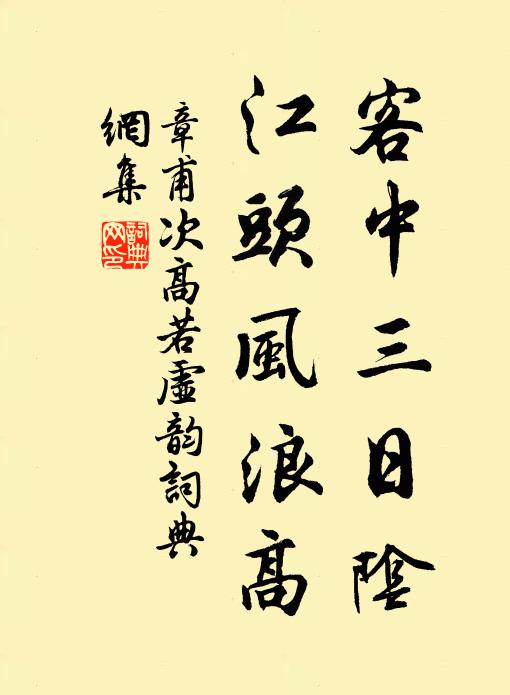 客中三日陰
江頭風浪高
章甫次高若虛韵詞典
網集
詞典網印